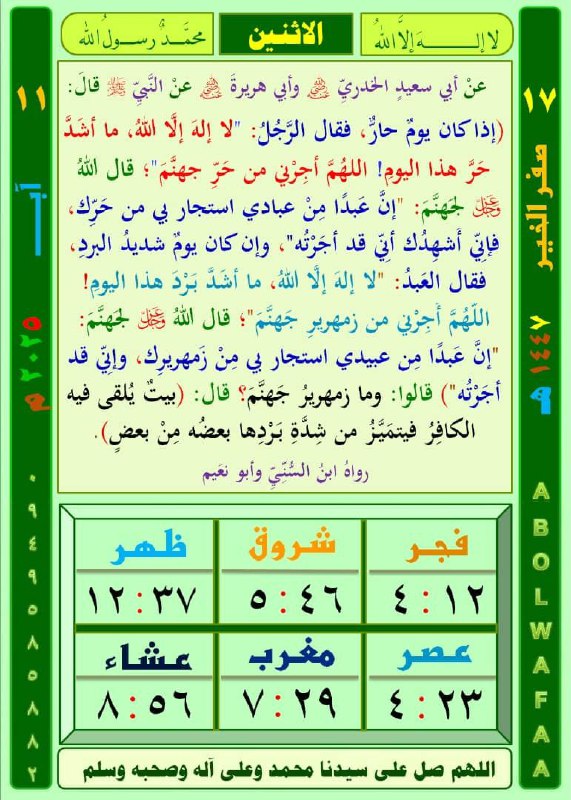 لا إلـــه إلا الله
الاثنين
محمد رسول الله
١٧
صفر الخير
١٤٤٧ هـ
ABOLWAFAA
١١
آب
٢٠٢٥ م
٠٩٤٩٥٨٥٨٨٢
عنْ أبي سعيدٍ الخدريِّ ﵁ وأبي هريرةَ ﵁ عنْ النَّبيِّ ﷺ قالَ:
(إذا كان يومٌ حارٌّ، فقال الرَّجُلُ: "لا إلهَ إلَّا اللهُ، ما أشَدَّ
حَرَّ هذا اليومِ! اللهُمَّ أجِرْني من حَرِّ جهنَّمَ"؛ قال اللهُ
ﷻ لجَهنَّمَ: "إنَّ عَبدًا مِنْ عبادي استجار بي من حَرِّك،
فإنِّي أشهِدُك أنِّي قد أجَرْتُه"، وإن كان يومٌ شديدُ البردِ،
فقال العَبدُ: "لا إلهَ إلَّا اللهُ، ما أشدَّ بَرْدَ هذا اليومِ!
اللّهُمَّ أجِرْني من زمهريرِ جَهنَّمَ"؛ قال اللهُ ﷻ لجَهنَّمَ:
"إنَّ عَبدًا مِن عبيدي استجار بي مِنْ زَمهريرِك، وإنِّي قد
أجَرْتُه") قالوا: وما زمهريرُ جَهنَّمَ؟ قال: (بيتٌ يُلقى فيه
الكافِرُ فيتمَيَّزُ من شِدَّةِ بَرْدِها بعضُه مِنْ بعضٍ).
رواهُ ابنُ السُّنِّيِّ وأبو نعَيم
فجر
شروق
ظهر
٤:١٢
٥:٤٦
١٢:٣٧
عصر
مغرب
عشاء
٤:٢٣
٧:٢٩
٨:٥٦
اللهم صل على سيدنا محمد وعلى آله وصحبه وسلم